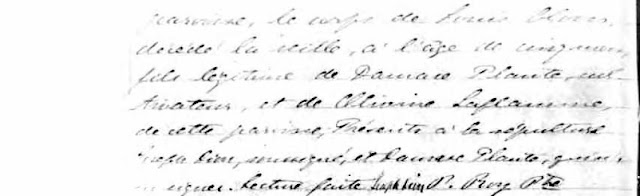 paroisse, le corps de Louis
décédé la veille, à l'âge de cinq mois,
fils légitime de Damase Plante, cul-
tivateur, et de Olivine Laflamme,
de cette paroisse, Présents à la sépulture
soussigné, et Damase Plante, qui n'a
signer. Lecture faite P. Roy Ptre